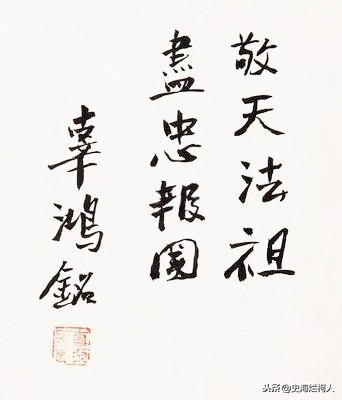 敬天法祖
盡忠報國
辜鴻銘
头条@史海烂柯人